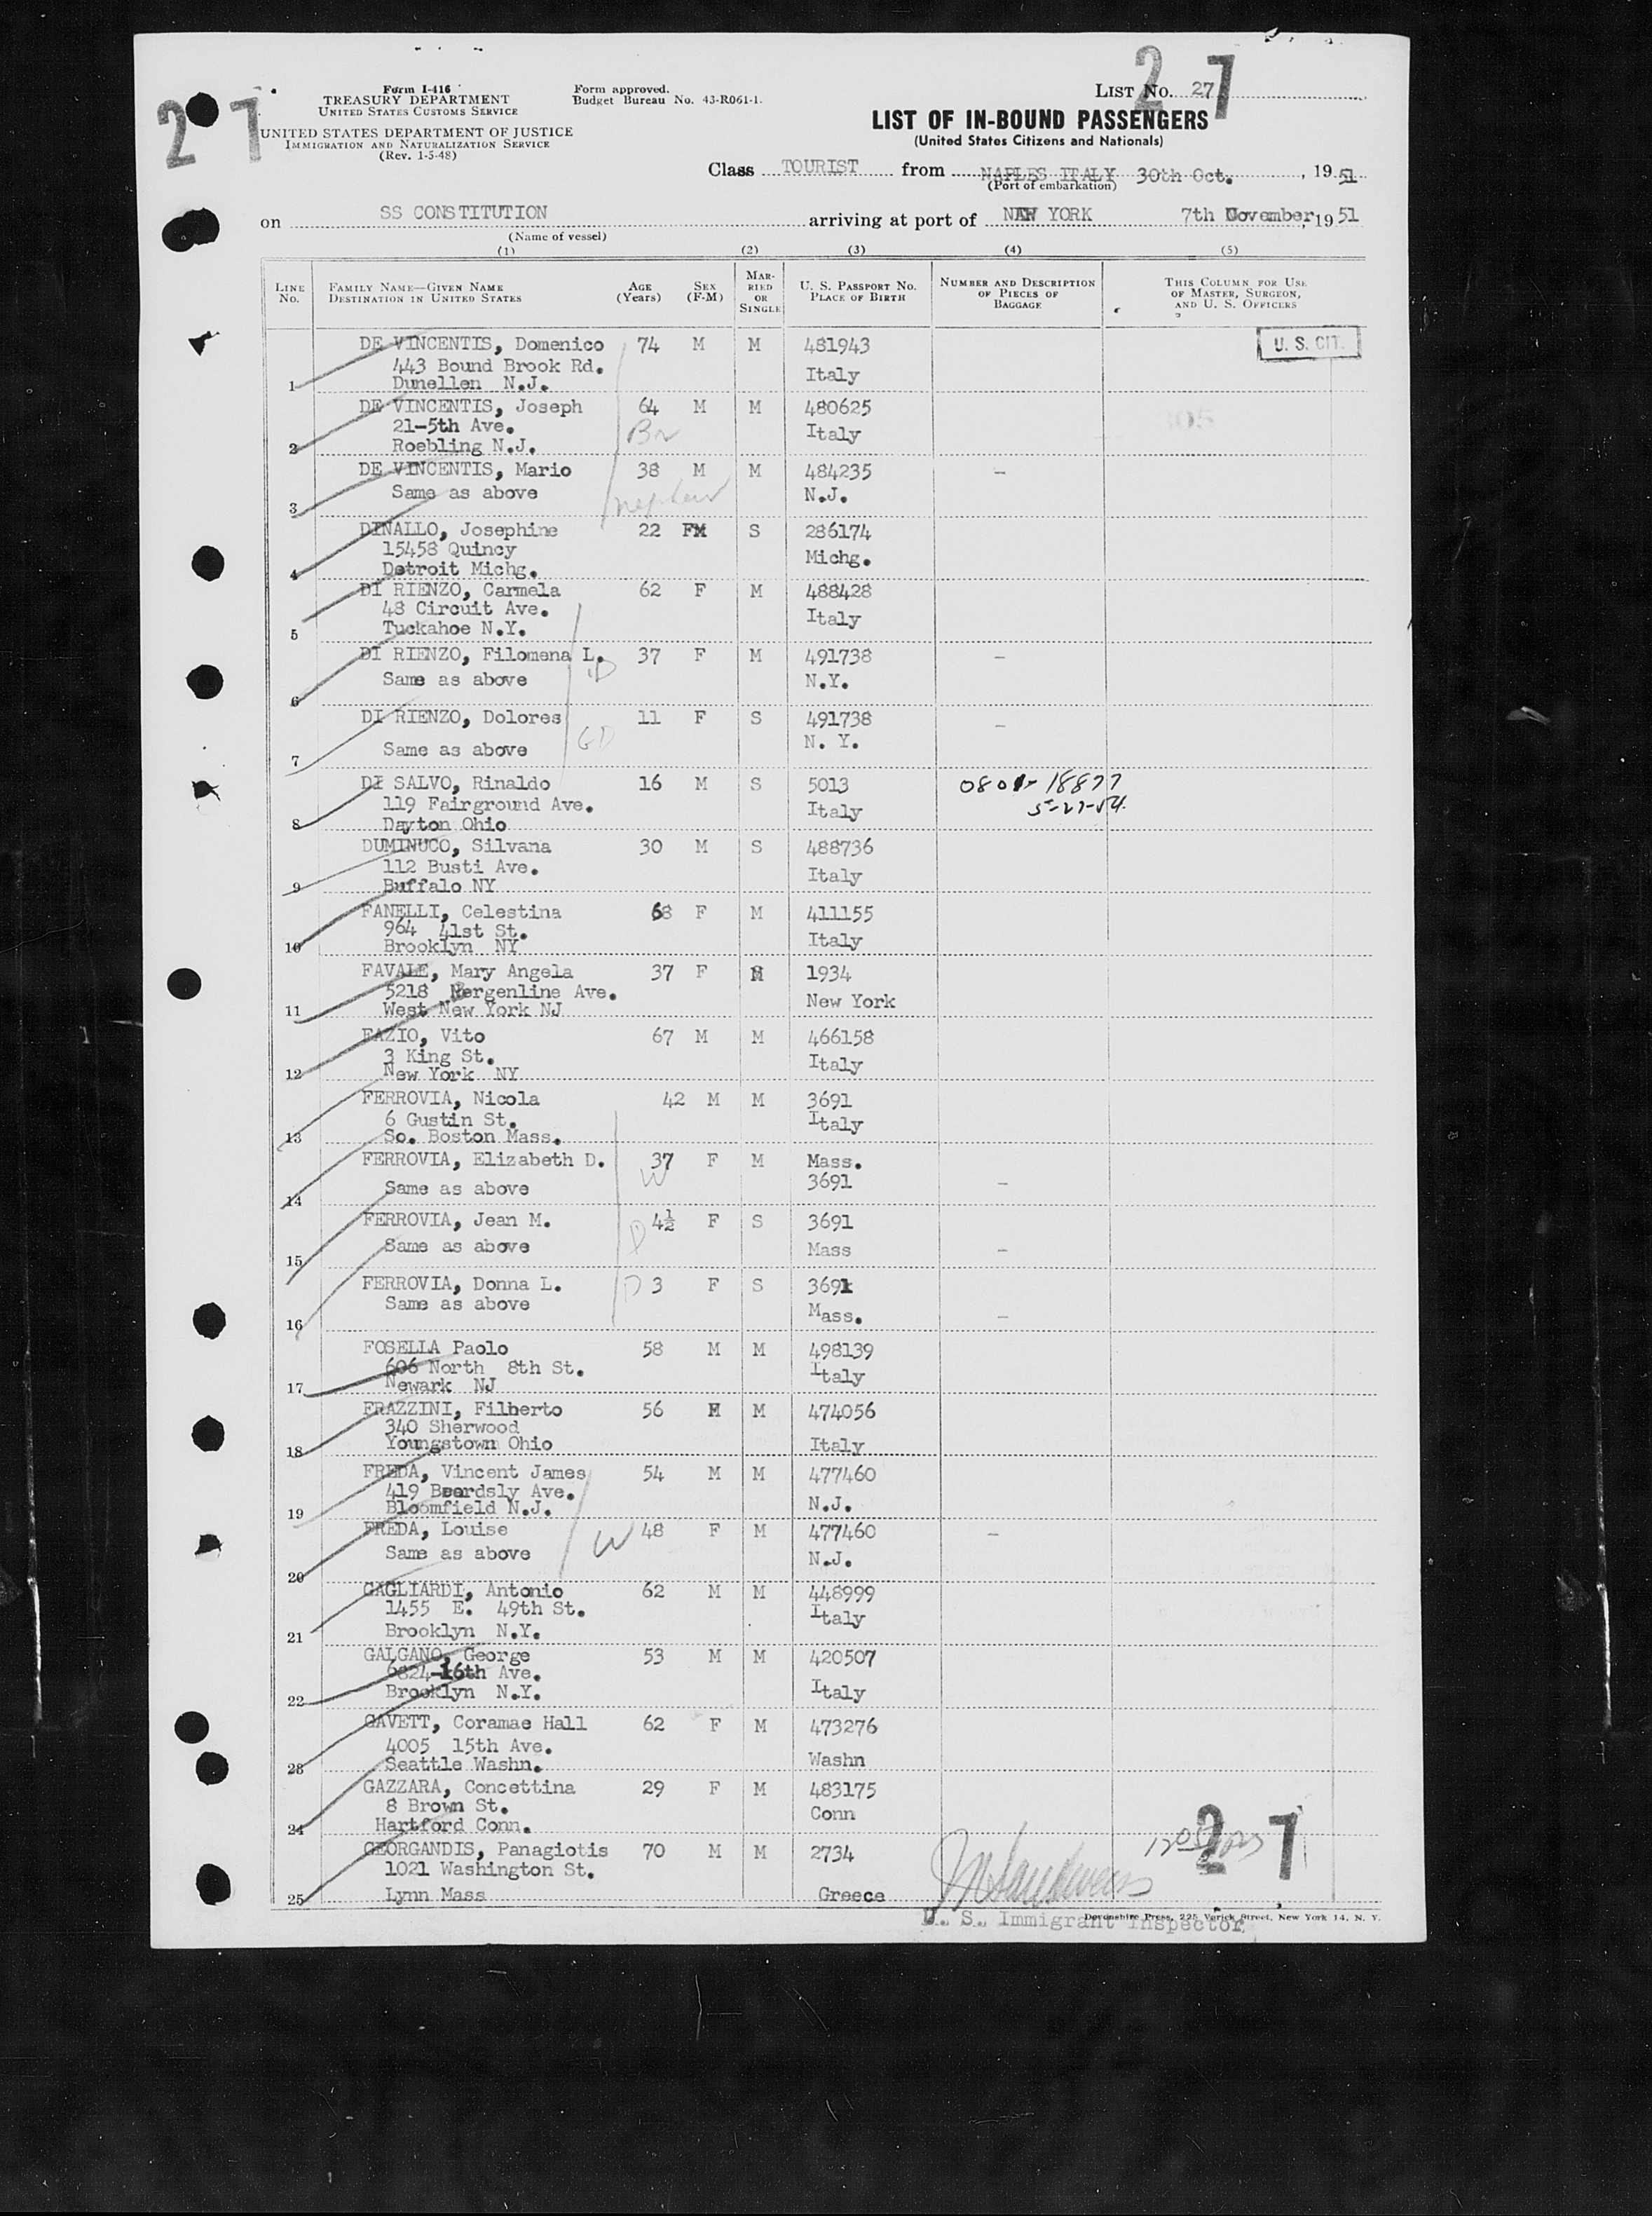 27
27
Form I-416
TREASURY DEPARTMENT
UNITED STATES CUSTOMS SERVICE
UNITED STATES DEPARTMENT OF JUSTICE
IMMIGRATION AND NATURALIZATION SERVICE
(Rev. 1-5-48)
Form approved.
Budget Bureau No. 43-R061-1.
LIST No. 27
LIST OF IN-BOUND PASSENGERS
(United States Citizens and Nationals)
Class TOURIST from NAPLES ITALY 30th Oct., 1951
(Port of embarkation)
on SS CONSTITUTION arriving at port of NEW YORK 7th November, 1951
(Name of vessel)
(1) (2) (3) (4) (5)
LINE No. FAMILY NAME—GIVEN NAME DESTINATION IN UNITED STATES AGE (Years) SEX (F-M) MARRIED OR SINGLE U. S. PASSPORT NO. PLACE OF BIRTH NUMBER AND DESCRIPTION OF PIECES OF BAGGAGE THIS COLUMN FOR USE OF MASTER, SURGEON, AND U. S. OFFICERS
DE VINCENTIS, Domenico 74 M M 481943 U. S. CIT.
443 Bound Brook Rd. Italy
1 Dunellen N.J.
DE VINCENTIS, Joseph 64 M M 480625
21-5th Ave. Br Italy
2 Roebling N.J.
DE VINCENTIS, Mario 38 M M 484235 -
Same as above nephew N.J.
3
DINALLO, Josephine 22 F S 286174
15458 Quincy Michg.
4 Detroit Michg.
DI RIENZO, Carmela 62 F M 488428
48 Circuit Ave. Italy
5 Tuckahoe N.Y.
DI RIENZO, Filomena L. 37 F M 491738 -
Same as above D N.Y.
6
DI RIENZO, Dolores 11 F S 491738 -
Same as above GD N. Y.
7
DI SALVO, Rinaldo 16 M S 5013 0801-18877
119 Fairground Ave. Italy 5-27-54
8 Dayton Ohio
DUMINUCO, Silvana 30 M S 488736
112 Busti Ave. Italy
9 Buffalo NY
FANELLI, Celestina 68 F M 411155
964 41st St. Italy
10 Brooklyn NY
FAVALE, Mary Angela 37 F 1934
5218 Bergenline Ave. New York
11 West New York NJ
FAZIO, Vito 67 M M 466158
3 King St. Italy
12 New York NY
FERROVIA, Nicola 42 M M 3691
6 Gustin St. Italy
13 So. Boston Mass.
FERROVIA, Elizabeth D. 37 F M Mass.
Same as above W 3691 -
14
FERROVIA, Jean M. D 4½ F S 3691
Same as above Mass -
15
FERROVIA, Donna L. D 3 F S 3691
Same as above Mass. -
16
FOSELLA Paolo 58 M M 498139
606 North 8th St. Italy
17 Newark NJ
FRAZZINI, Filberto 56 M M 474056
340 Sherwood
18 Youngstown Ohio Italy
FREDA, Vincent James 54 M M 477460
419 Beardsly Ave. N.J.
19 Bloomfield N.J.
FREDA, Louise W 48 F M 477460 -
Same as above N.J.
20
GAGLIARDI, Antonio 62 M M 448999
1455 E. 49th St. Italy
21 Brooklyn N.Y.
GALGANO, George 53 M M 420507
6824-16th Ave. Italy
22 Brooklyn N.Y.
GAVETT, Coramae Hall 62 F M 473276
4005 15th Ave. Washn
23 Seattle Washn.
GAZZARA, Concettina 29 F M 483175
8 Brown St. Conn
24 Hartford Conn.
GEORGANDIS, Panagiotis 70 M M 2734
1021 Washington St.
25 Lynn Mass Greece
27
U. S. Immigrant Inspector
Devonshire Press, 225 Varick Street, New York 14, N. Y.